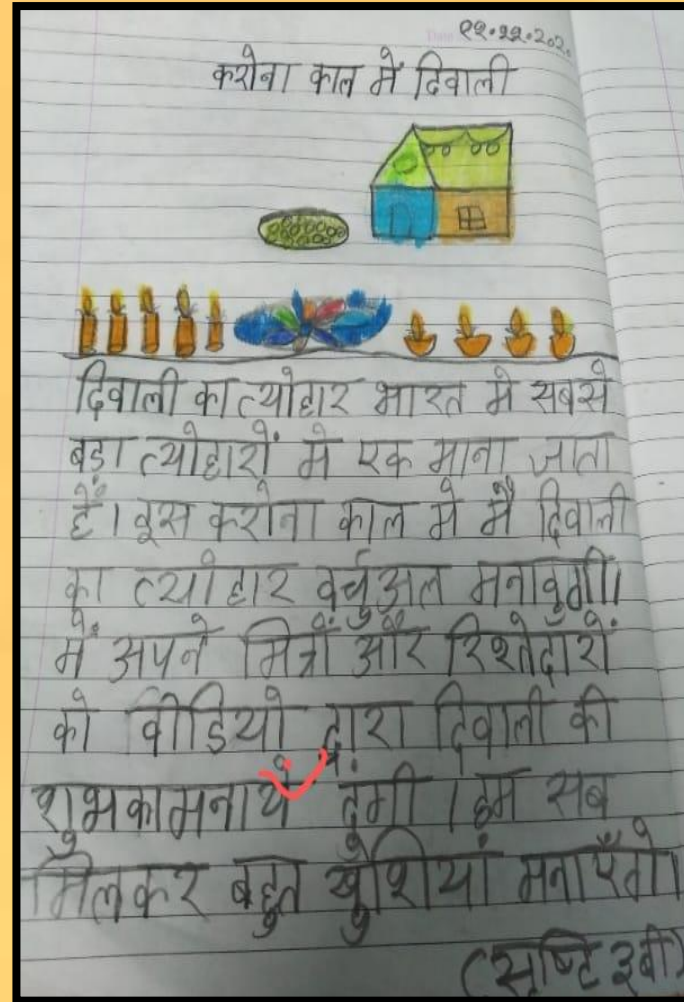 १२.११.२०२०
करोना काल में दिवाली
दिवाली का त्योहार भारत मे सबसे
बड़ा त्योहारों मे एक माना जाता
हैं। इस करोना काल मे मै दिवाली
का त्योहार वर्चुअल मनावुगी।
में अपने मित्रों और रिश्तेदारों
को वीडियो द्वारा दिवाली की
शुभकामनाये दुंगी । हम सब
मिलकर बहुत खुशियां मनाएँगे।
(सृष्टि ३बी)